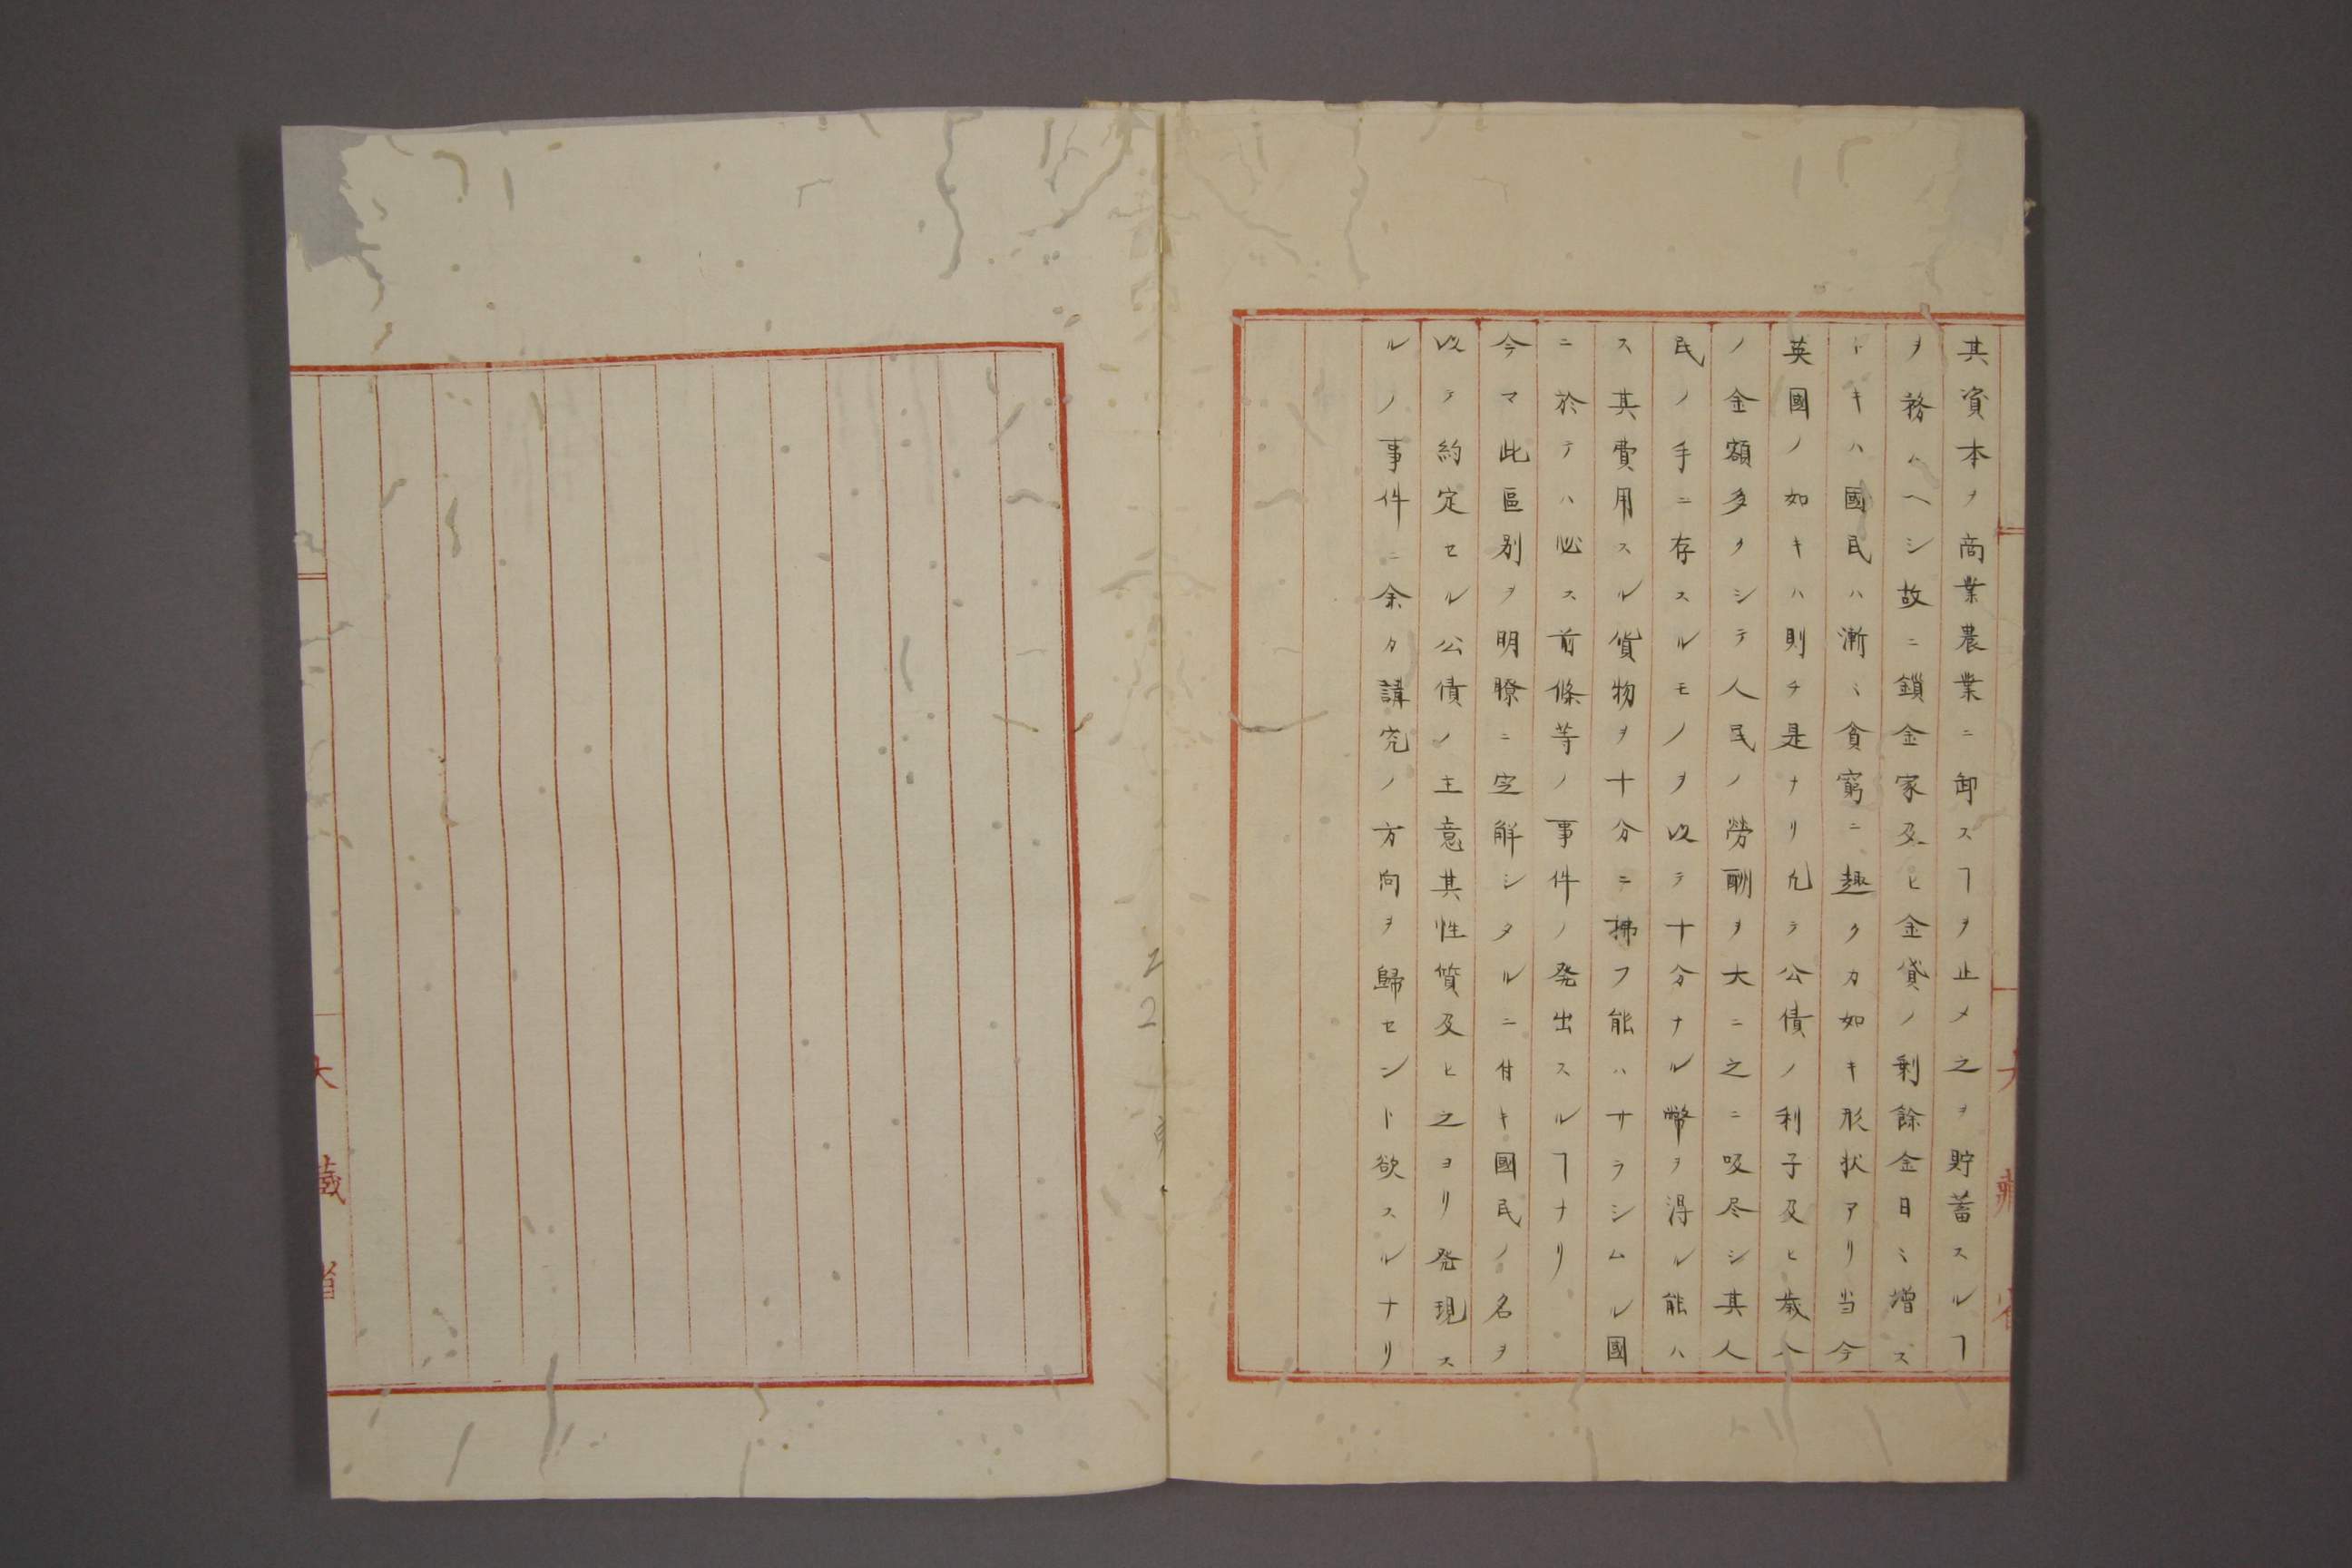 其資本ヲ商業農業ニ卸スヿヲ止メ之ヲ貯蓄スルヿ
ヲ務ムヘシ故ニ鎖金家及ヒ金貸ノ剰餘金日ミ増ス
トキハ國民ハ漸ミ貧窮ニ趣クカ如キ形状アリ当今
英國ノ如キハ則チ是ナリ凢テ公債ノ利子及ヒ歳入
ノ金額多クシテ人民ノ勞酬ヲ大ニ之ニ吸尽シ其人
民ノ手ニ存スルモノヲ以テ十分ナル幣ヲ得ル能ハ
ス其費用スル貨物ヲ十分ニ拂フ能ハサラシムル國
ニ於テハ必ス前條等ノ事件ノ発出スルヿナリ
今マ此區别ヲ明瞭ニ定解シタルニ付キ國民ノ名ヲ
以テ約定セル公債ノ主意其性質及ヒ之ヨリ発現ス
ルノ事件ニ余カ講究ノ方向ヲ歸セント欲スルナリ
大藏省
22
大藏省